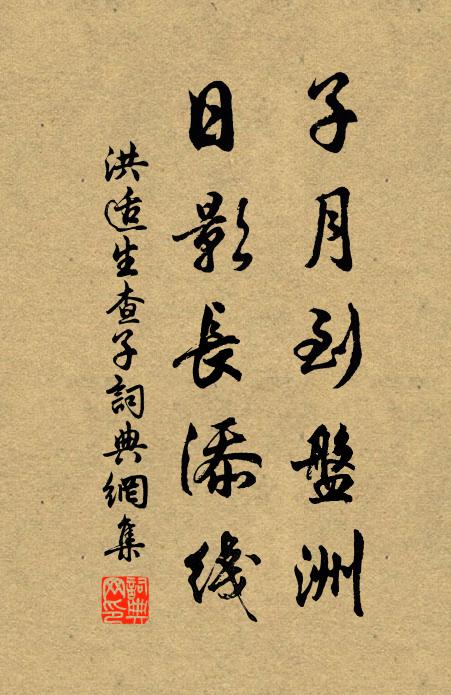 子月到盤洲
日影長添綫
洪适生查子詞典網集
詞典網印